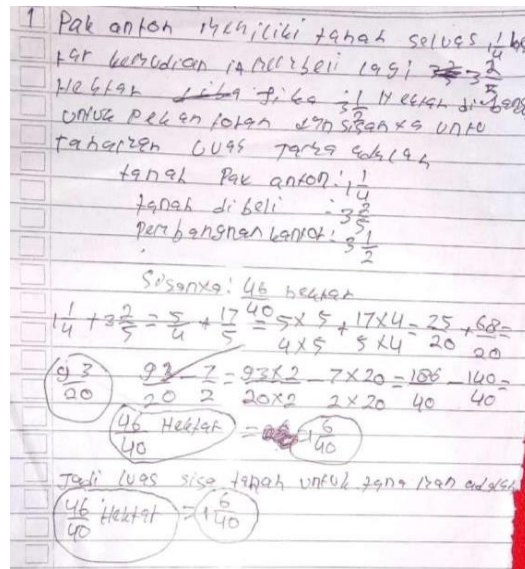 1 Pak anton memiliki tanah seluas 1 1/4 hek
tar kemudian ia membeli lagi 3 2/5
Hektar jika 3 1/2 Hektar di bang
untuk Pekantoran dan sisanxa untu
taman luas adalah
tanah Pak anton : 1 1/4
tanah di beli : 3 2/5
Pembangnan kantor : 3 1/2
Sisanxa : 46/40 hektar
1 1/4 + 3 2/5 = 5/4 + 17/5 = 5x5/4x5 + 17x4/5x4 = 25/20 + 68/20 =
93/20 93/20 - 7/2 = 93x2/20x2 - 7x20/2x20 = 186/40 - 140/40 =
46/40 Hektar = 1 6/40
Jadi luas sisa tanah untuk adalah
46/40 Hektar = 1 6/40